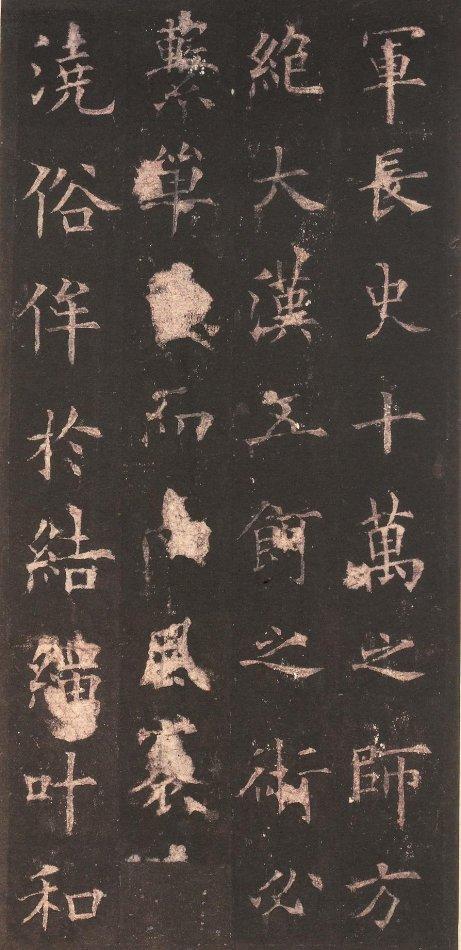 軍長史十萬之師方
絶大漢五餌之術必
繫單而風裏
澆俗侔於結繩叶和